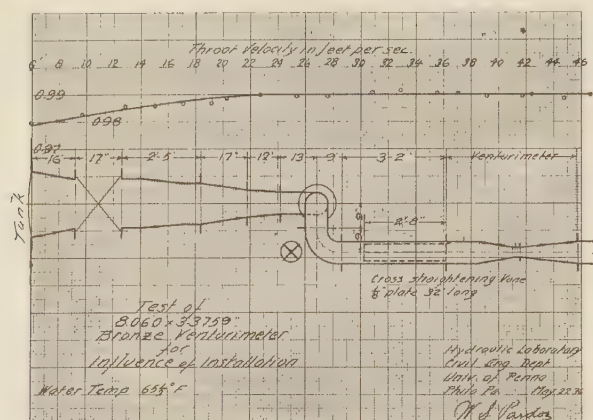 Throat Velocity in feet per sec.
6 8 10 12 14 16 18 20 22 24 26 28 30 32 34 36 38 40 42 44 46
0.99
0.98
0.97
16" 17" 2'-5 17" 12" 13" 9" 3'-2" Venturimeter
Tank
2'-8"
Cross straightening Vane
plate 32" long
Test of
8.060 x 3.3759"
Bronze Venturimeter
for
Influence of Installation
Water Temp 65½° F
Hydraulic Laboratory
Civil Eng Dept
Univ. of Penna
Phila Pa May 22 36
W. S. Pardoe